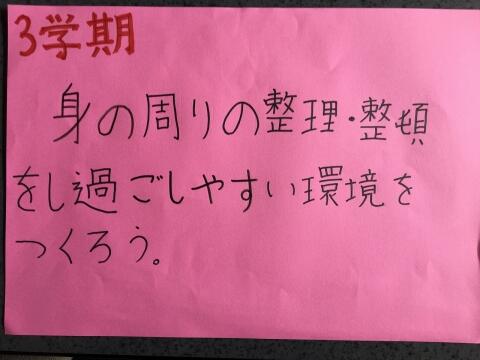 3学期
身の周りの整理・整頓
をし過ごしやすい環境を
つくろう。